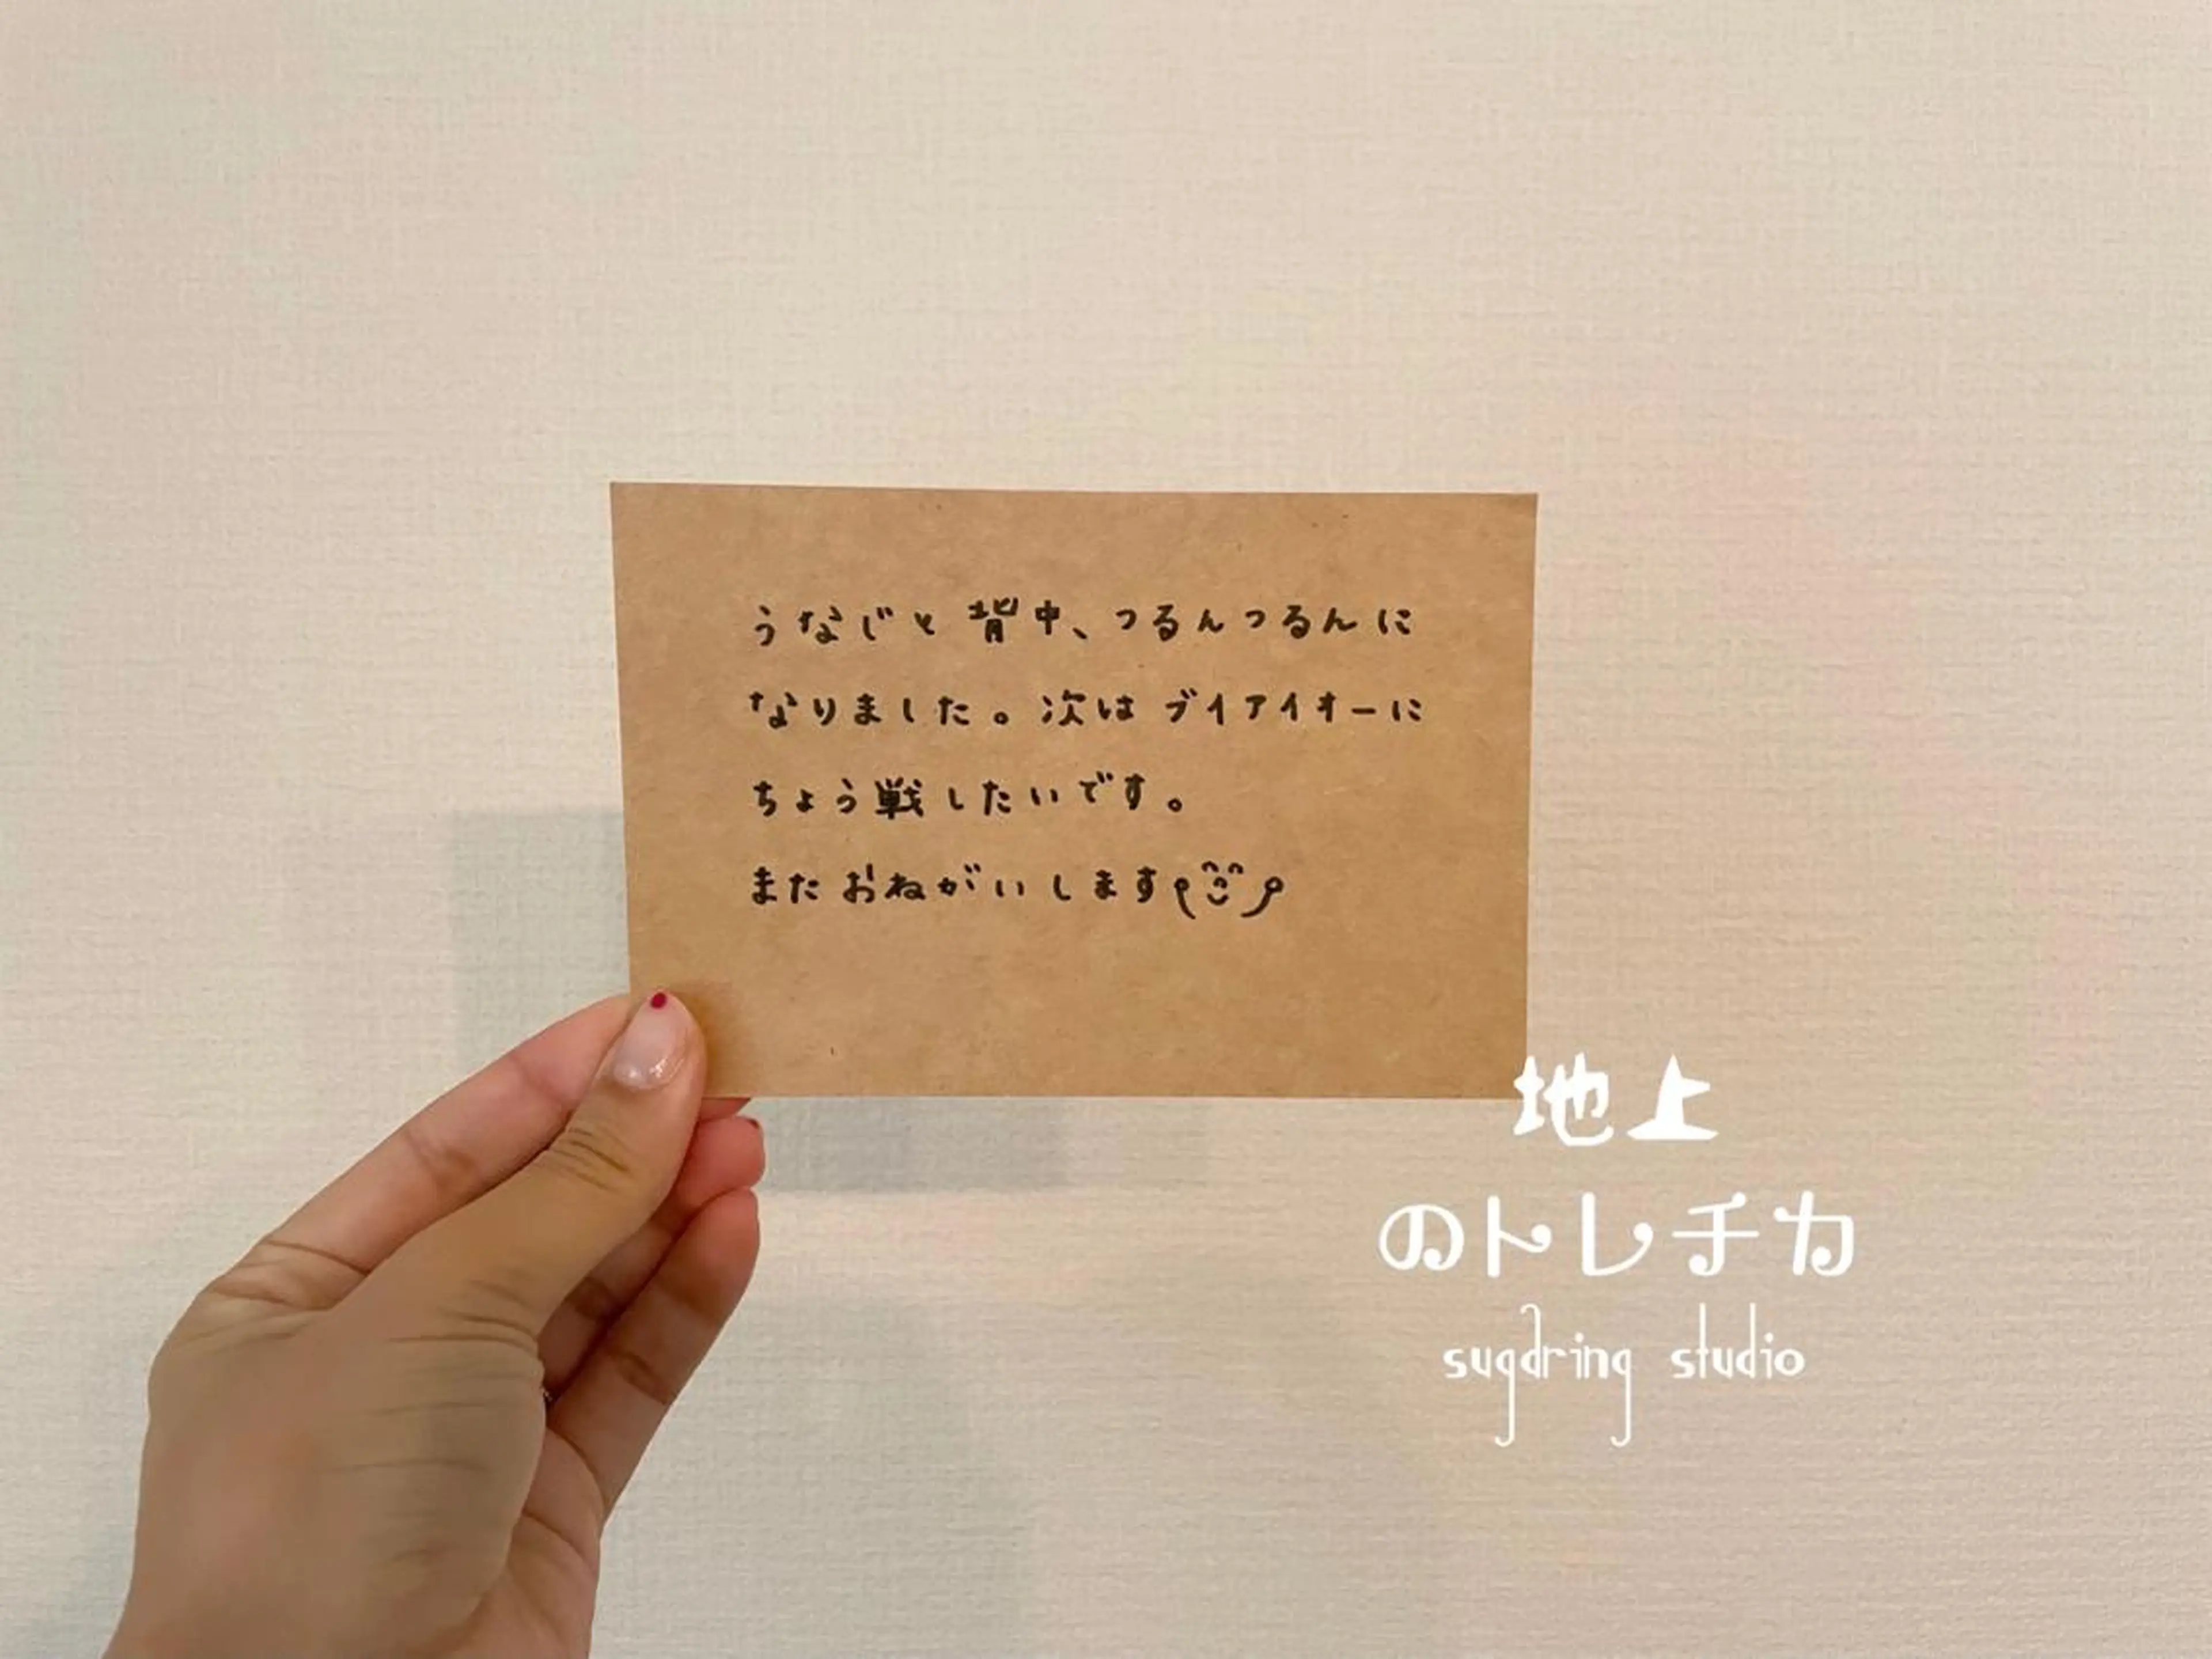 うなじと背中、つるんつるんに
なりました。次はブイアイオーに
ちょう戦したいです。
またおねがいします
地上
のトレチカ
sugaring studio